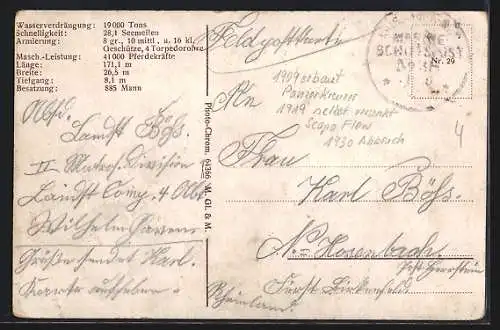 Wasserverdrängung: 19000 Tons
Schnelligkeit: 28,1 Seemeilen
Armierung: 8 gr., 10 mittl., u. 16 kl.
Geschütze, 4 Torpedorohre
Masch.-Leistung: 41000 Pferdekräfte
Länge: 171,1 m
Breite: 26,5 m
Tiefgang: 8,1 m
Besatzung: 885 Mann
Abs.
Landst. Böhs.
II Matros. Division
Landst Comp. 4 Abt
Wilhelmshaven
Grüße sendet Karl.
Karte aufheben
Photo-Chrom. 64366 M. Gl. & M.
Feldpostkarte
MARINE
Nr. 29
1909 erbaut
Panzerkreuzer
1919 selbst versenkt
Scapa Flow
1930 Abbruch
4
An
Frau
Karl Böhs.
N.-Hosenbach.
Post Herrstein
Fürst. Birkenfeld
Rheinland.